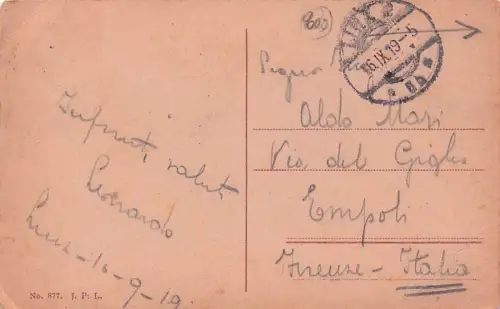 Infiniti saluti
Leonardo
Linz-16-9-19
No. 877. J. P. L.
600
LINZ 2
16.IX.19-5
Aldo Masi
Via del Giglio
Empoli
Firenze - Italia